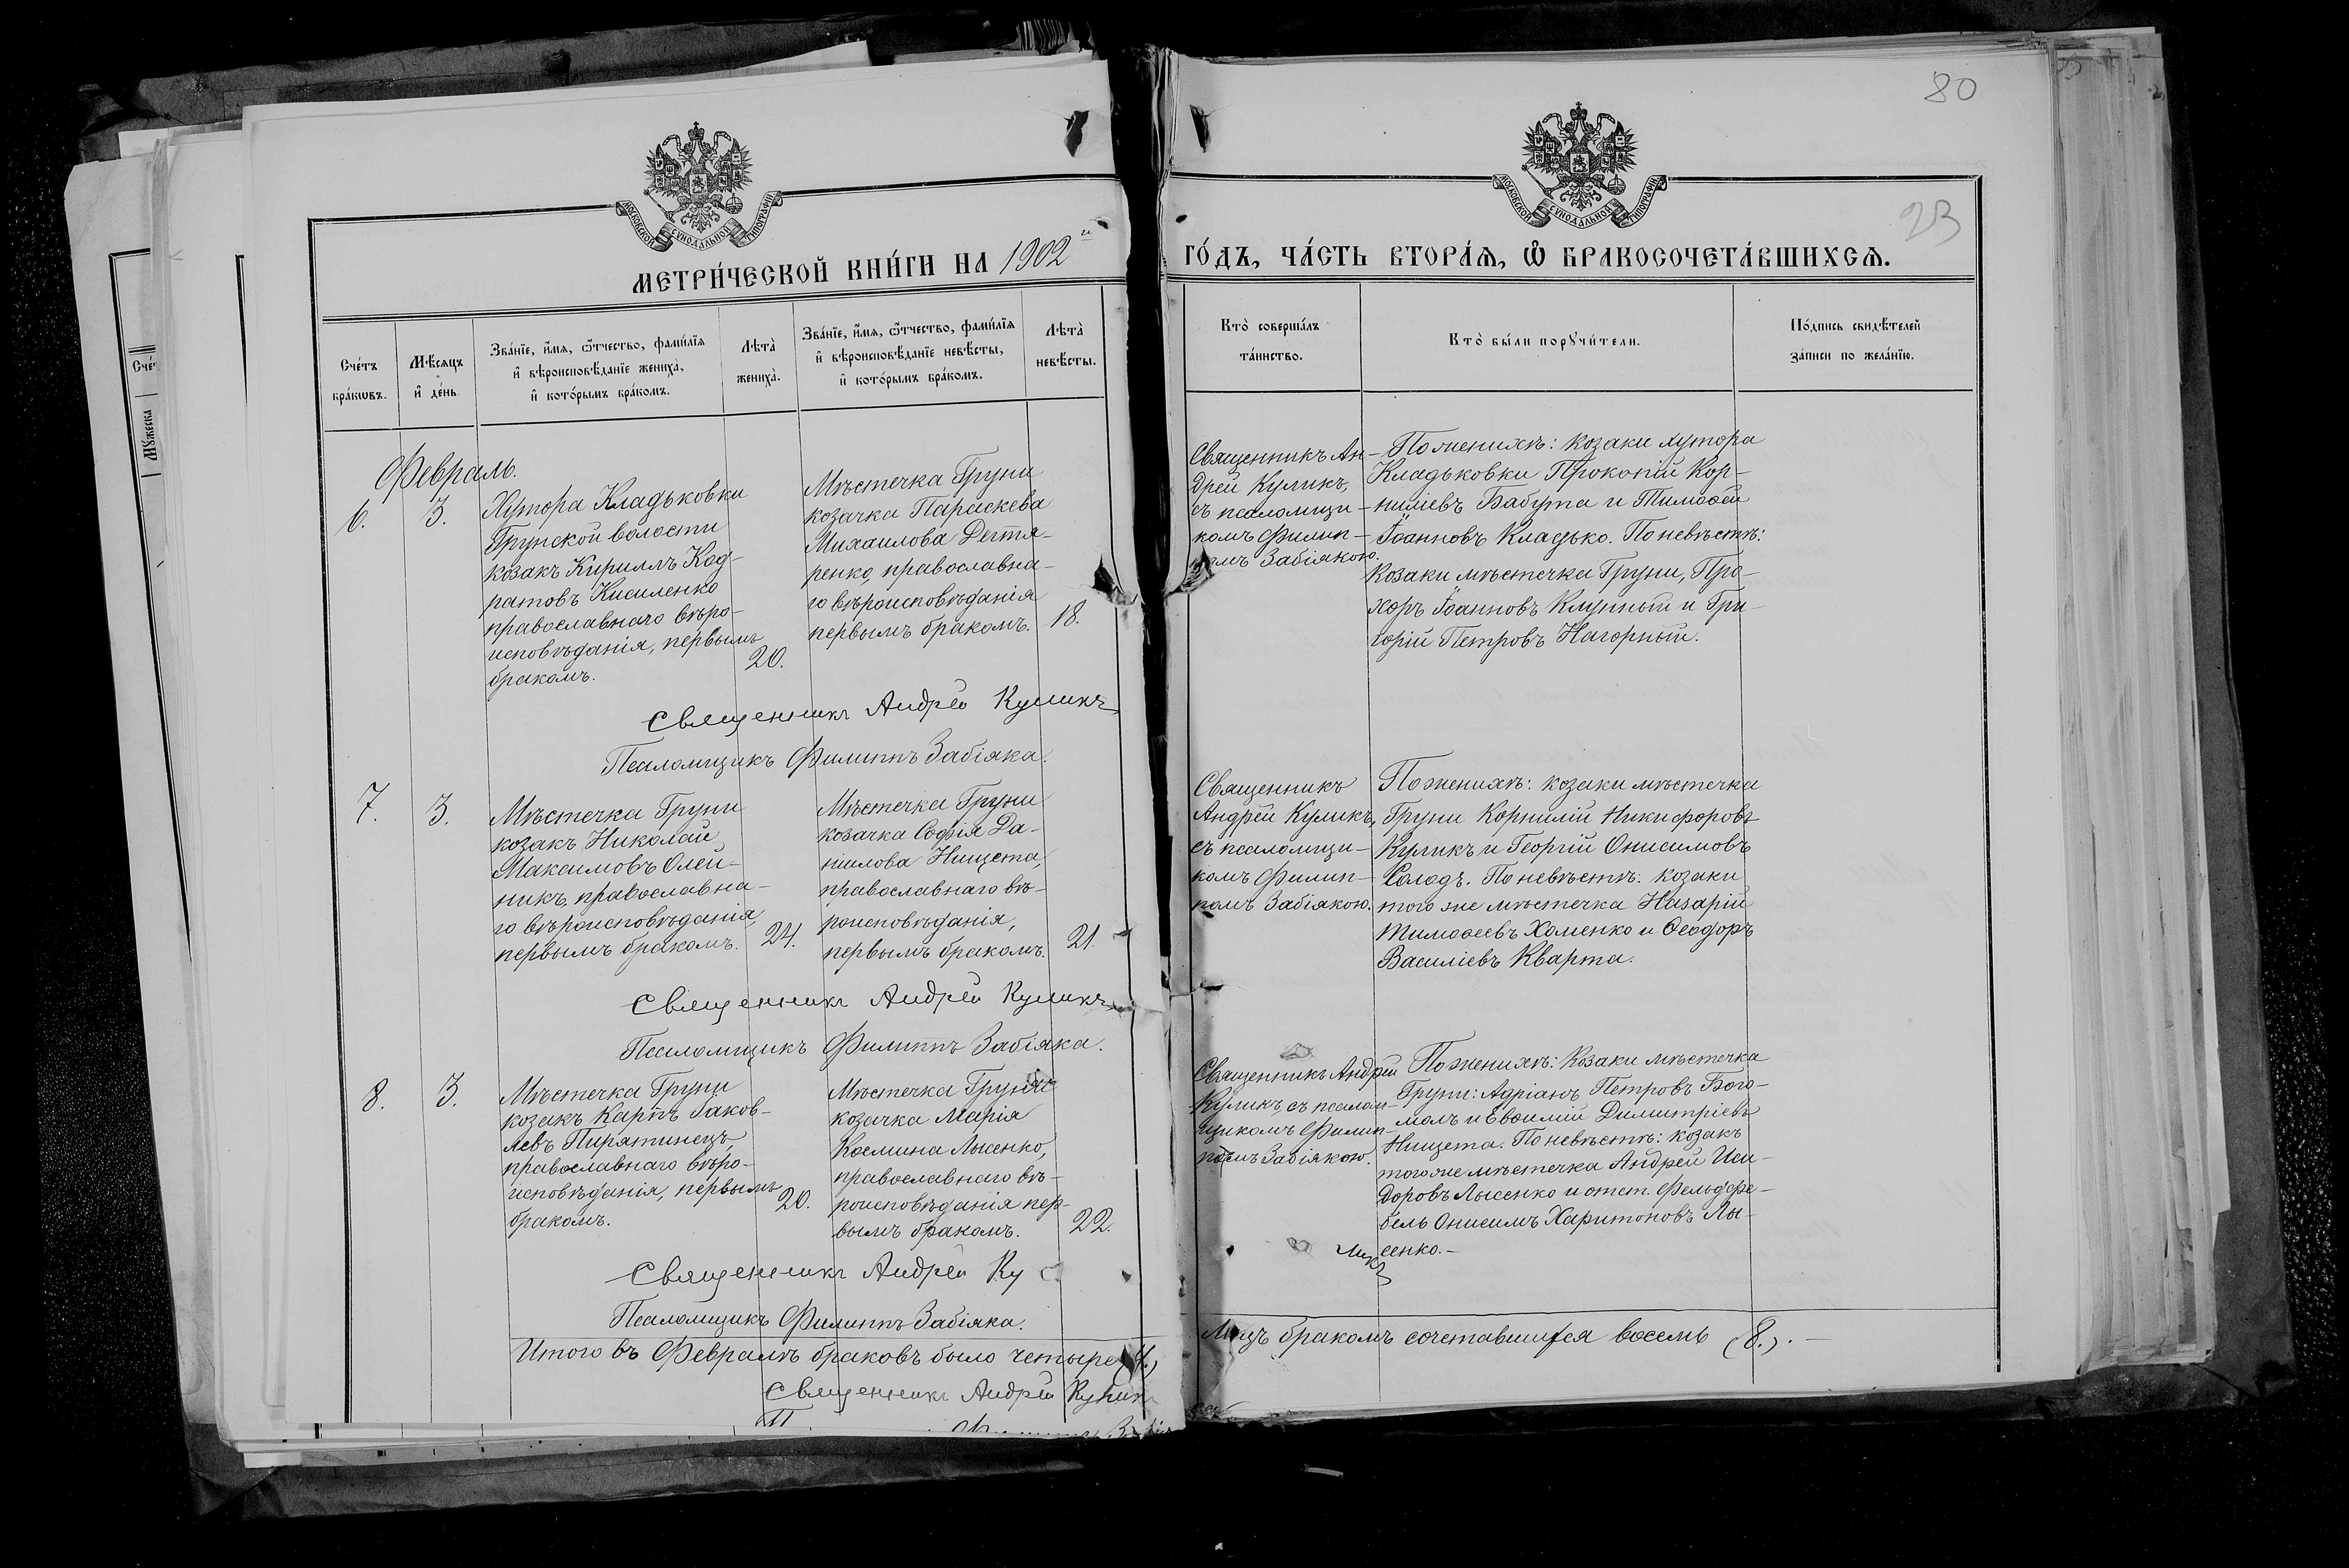 80
23
МОСКОВСКОЙ СѴНОДАЛЬНОЙ ТИПОГРАФІИ
МОСКОВСКОЙ СѴНОДАЛЬНОЙ ТИПОГРАФІИ
МЕТРИ́ЧЕСКОЙ КНИ́ГИ НА 1902 й
ГО́ДЪ, ЧА́СТЬ ВТОРА́Ѧ, Ѽ БРАКОСОЧЕТА́ВШИХСѦ.
Сче́тъ
бра́кѡвъ.
Мѣ́сяцъ
и҆ де́нь.
Зва́нїе, и҆́мѧ, ѻ҆́тчество, фами́лїѧ
и҆ вѣроисповѣ́данїе жениха̀,
и҆ кото́рымъ бра́комъ.
Лѣта̀
жениха̀.
Зва́нїе, и҆́мѧ, ѻ҆́тчество, фами́лїѧ
и҆ вѣроисповѣ́данїе невѣ́сты,
и҆ кото́рымъ бра́комъ.
Лѣта̀
невѣ́сты.
Кто̀ соверша́лъ
та́инство.
Кто̀ бы́ли порꙋчи́тели.
По́дпись свидѣ́телей
за́писи по жела́нїю.
Февраль.
6.
3.
Хутора Кладьковки
Грунской волости
козакъ Кириллъ Код-
ратовъ Кисиленко
православнаго вѣро-
исповѣданія, первымъ
бракомъ.
20.
Мѣстечка Груни
козачка Параскева
Михаилова Дегтя-
ренко, православна-
го вѣроисповѣданія
первымъ бракомъ.
18.
Священникъ Ан-
дрей Куликъ,
съ псаломщи-
комъ Филип-
помъ Забіякою.
По женихѣ: козаки хутора
Кладьковки Прокопій Кор-
ниліевъ Бабута и Тимоѳей
Іоанновъ Кладько. По невѣстѣ:
Козаки мѣстечка Груни, Про-
хоръ Іоанновъ Клунный и Гри-
горій Петровъ Нагорный.
Священникъ Андрей Куликъ
Псаломщикъ Филиппъ Забіяка.
7.
3.
Мѣстечка Груни
козакъ Николай
Максимовъ Олей-
никъ, православна-
го вѣроисповѣданія,
первымъ бракомъ.
24.
Мѣстечка Груни
козачка Софія Да-
ніилова Нищета,
православнаго вѣ-
роисповѣданія,
первымъ бракомъ.
21.
Священникъ
Андрей Куликъ,
съ псаломщи-
комъ Филип-
помъ Забіякою.
По женихѣ: козаки мѣстечка
Груни Корнилій Никифоровъ
Куликъ и Георгій Онисимовъ
Солодъ. По невѣстѣ: козаки
того же мѣстечка Назарій
Тимоѳеевъ Хоменко и Ѳеодоръ
Василіевъ Кварта.
Священникъ Андрей Куликъ
Псаломщикъ Филиппъ Забіяка.
8.
3.
Мѣстечка Груни
козакъ Карпъ Іаков-
левъ Пирятинецъ,
православнаго вѣро-
исповѣданія, первымъ
бракомъ.
20.
Мѣстечка Груни
козачка Марія
Космина Лысенко,
православнаго вѣ-
роисповѣданія пер-
вымъ бракомъ.
22.
Священникъ Андрей
Куликъ, съ псалом-
щикомъ Филип-
помъ Забіякою.
По женихѣ: Козаки мѣстечка
Груни: Адріанъ Петровъ Бого-
молъ и Евѳимій Димитріевъ
Нищета. По невѣстѣ: козакъ
того же мѣстечка Андрей Иси-
доровъ Лысенко и отст. Фельдфе-
бель Онисимъ Харитоновъ Лы-
сенко.-
Священникъ Андрей Ку
ликъ
Псаломщикъ Филиппъ Забіяка.
Итого въ Февралѣ браковъ было четыре (4.)
Лицъ бракомъ сочетавшихся восемь (8.). -
Священникъ Андрей Кулик